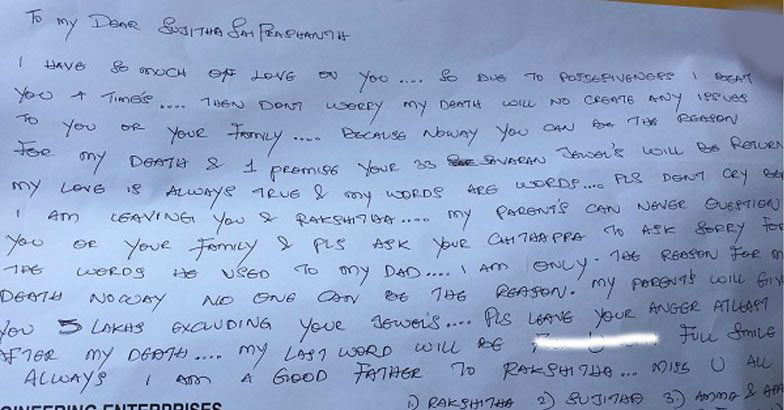 To my DEAR SUJITHA SAI PRASHANTH
I HAVE SO MUCH OFF LOVE ON YOU .... SO DUE TO POSSESIVENESS I BEAT
YOU 4 TIME'S ..... THEN DONT WORRY MY DEATH WILL NO CREATE ANY ISSUES
TO YOU OR YOUR FAMILY .... BECAUSE NOWAY YOU CAN BE THE REASON
FOR MY DEATH & I PROMISE YOUR 33 SAVARAN JEWEL'S WILL BE RETURN
MY LOVE IS ALWAYS TRUE & MY WORDS ARE WORDS.... PLS DONT CRY
I AM LEAVING YOU & RAKSHITHA .... MY PARENT'S CAN NEVER QUESTION
YOU OR YOUR FAMILY & PLS ASK YOUR CHITHAPPA TO ASK SORRY FOR
THE WORDS HE USED TO MY DAD.... I AM ONLY. THE REASON FOR
DEATH NOWAY NO ONE CAN BE THE REASON. MY PARENT'S WILL GIVE
YOU 5 LAKHS EXCLUDING YOUR JEWEL'S .... PLS LEAVE YOUR ANGER ATLEAST
AFTER MY DEATH .... MY LAST WORD WILL BE FULL SMILE
ALWAYS I AM A GOOD FATHER TO RAKSHITHA ... MISS U ALL
ENTERPRISES 1) RAKSHITHA 2) SUJITHA 3) AMMA &